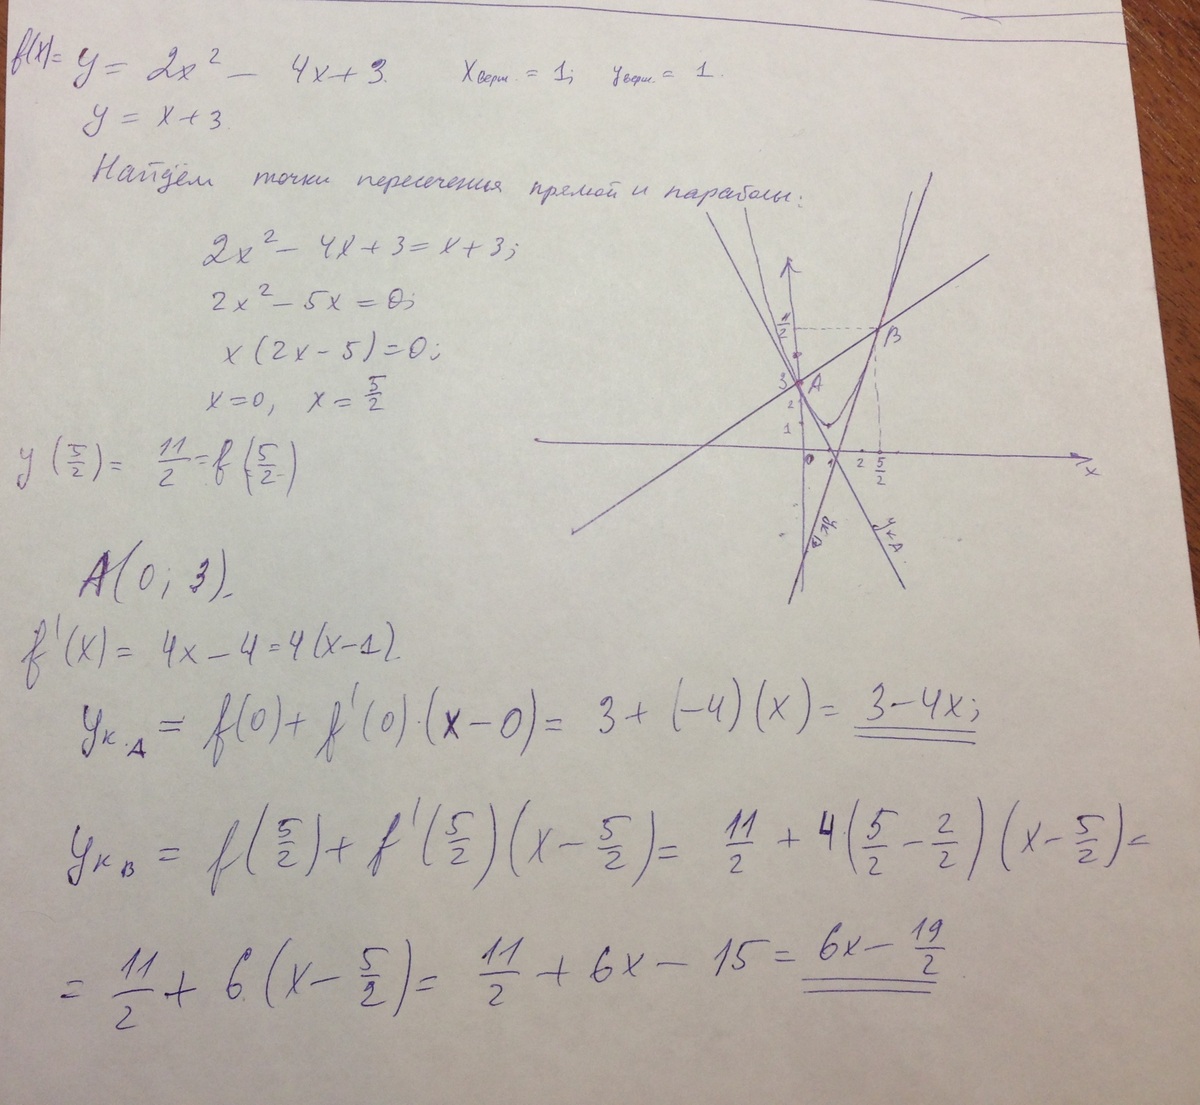 f(x)= y = 2x² - 4x + 3. xверш. = 1; yверш. = 1.
y = x + 3
Найдём точки пересечения прямой и параболы:
2x² - 4x + 3 = x + 3;
2x² - 5x = 0;
x(2x - 5) = 0;
x = 0, x = 5/2
y(5/2) = 11/2 = f(5/2)
A(0; 3).
f'(x) = 4x - 4 = 4(x - 1).
yк.A = f(0) + f'(0)·(x - 0) = 3 + (-4)(x) = 3 - 4x;
yкB = f(5/2) + f'(5/2)(x - 5/2) = 11/2 + 4(5/2 - 2/2)(x - 5/2) =
= 11/2 + 6(x - 5/2) = 11/2 + 6x - 15 = 6x - 19/2
B
3 A
2
1
0 1 2 5/2
x
yкB
yкA